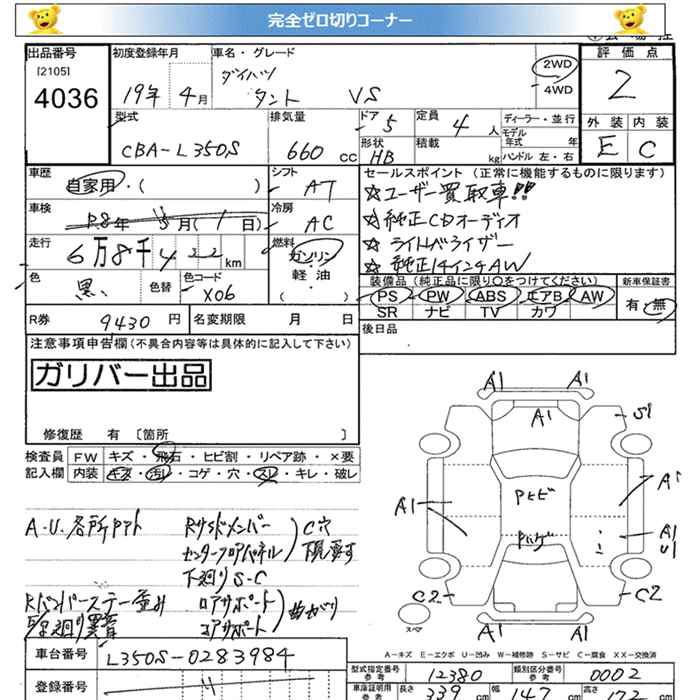 完全ゼロ切りコーナー
出品番号
[2105]
4036
初度登録年月
19年 4月
車名・グレード
ダイハツ
タント VS
2WD
4WD
評価点
2
外装 内装
E C
型式
CBA-L350S
排気量
660 cc
ドア 5
形状 HB
定員 4 人
積載 kg
ディーラー・並行
モデル年式 年
ハンドル 左・右
車歴
自家用・( )
シフト
AT
車検
R8年 5月(1日)
冷房
AC
走行
6万8千422km
燃料
ガソリン・軽油
( )
色
黒
色替
色コード
X06
R券 9430 円
名変期限 月 日
セールスポイント (正常に機能するものに限ります)
☆ユーザー買取車!!
☆純正CDオーディオ
☆ライトレベライザー
☆純正14インチAW
装備品 (純正品に限り○をつけてください)
PS PW ABS エアB AW
SR ナビ TV カワ
新車保証書
有・無
後日品
注意事項申告欄(不具合内容等は具体的に記入して下さい)
ガリバー出品
修復歴 有 〔箇所 〕
検査員記入欄
FW キズ・飛石・ヒビ割・リペア跡・×要
内装 キズ・汚レ・コゲ・穴・スレ・キレ・破レ
A.U.各所
C穴
下廻りS-C
曲がり
A1 A1
A1
S1
A1
A1
A1
U1
C2
C2
A1 A1
スペア
A－キズ E－エクボ U－凹み W－補修跡 S－サビ C－腐食 XX－交換済
車台番号
L350S-0283984
登録番号
型式指定番号 参考
12380
類別区分番号 参考
0002
車庫証明用 参考
長さ 339 cm
幅 147 cm
高さ 172 cm